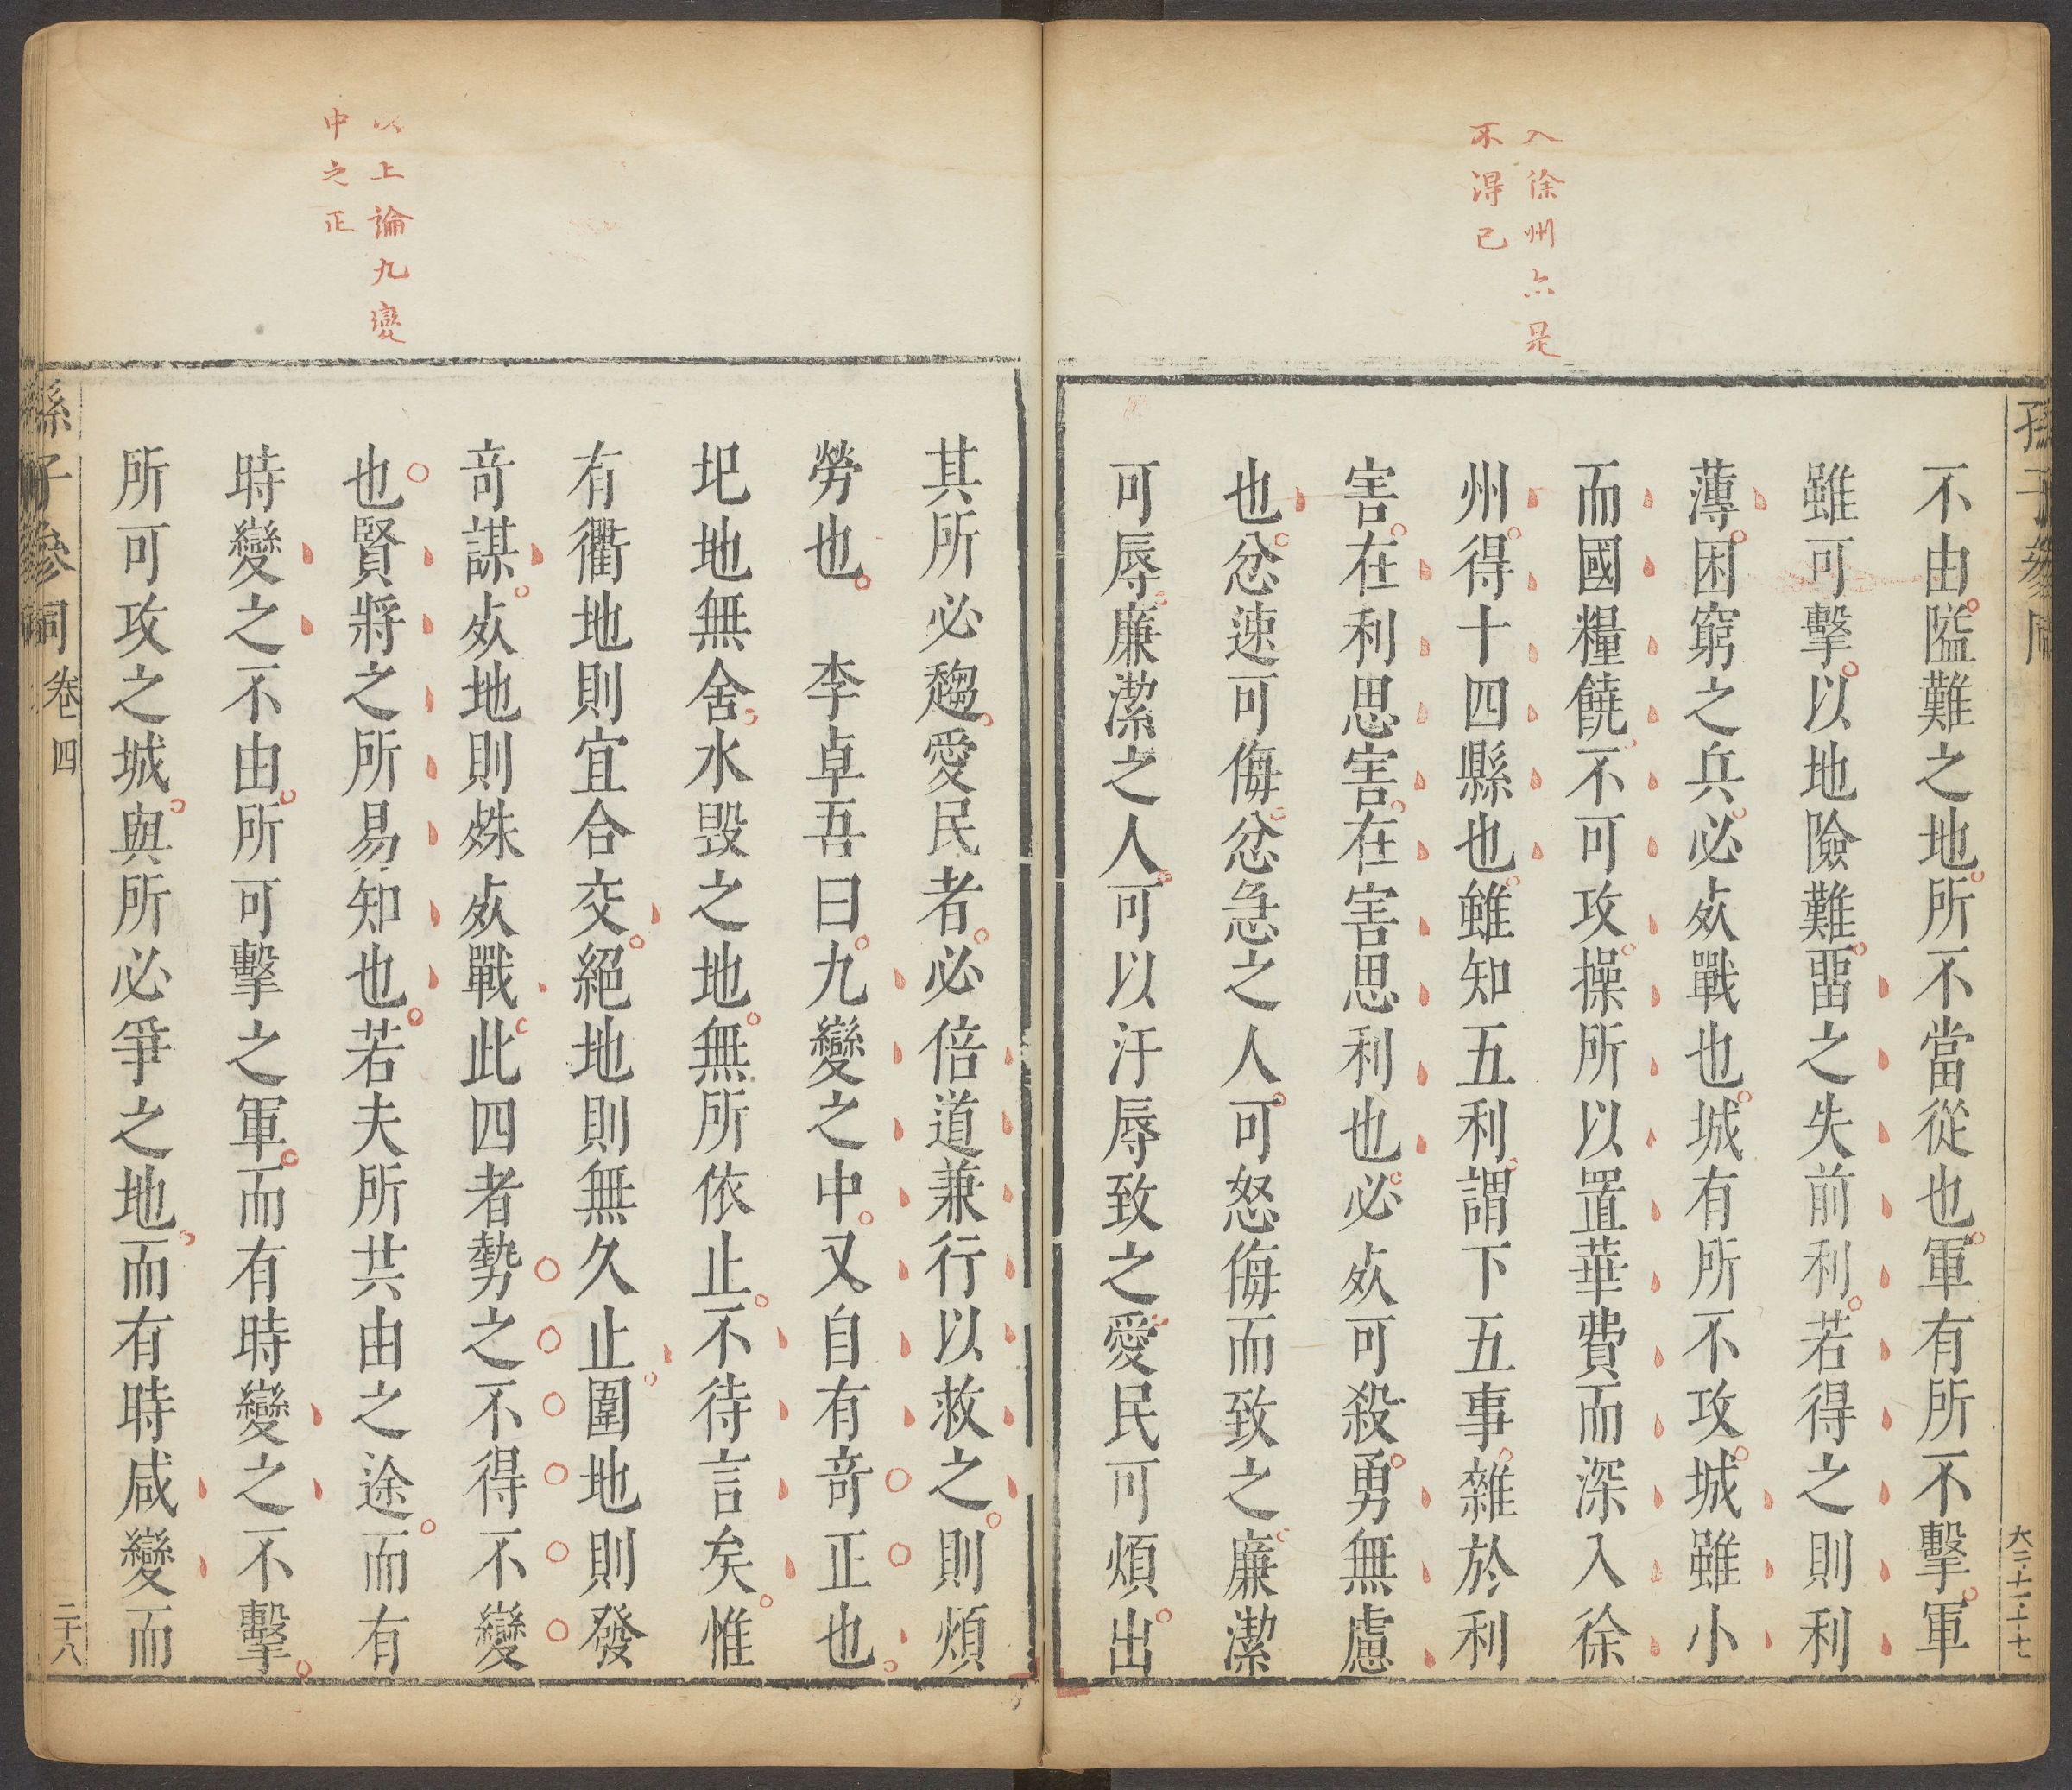 入徐州亦是
不得已
不由隘難之地所不當從也軍有所不擊軍
雖可擊以地險難畱之失前利若得之則利
薄困窮之兵必𣦸戰也城有所不攻城雖小
而國糧饒不可攻操所以置華費而深入徐
州得十四縣也雖知五利謂下五事雜於利
害在利思害在害思利也必𣦸可殺勇無慮
也忿速可侮忿急之人可怒侮而致之廉潔
可辱廉潔之人可以汙辱致之愛民可煩出
以上論九變
中之正
其所必趨愛民者必倍道兼行以救之則煩
勞也 李卓吾曰九變之中又自有竒正也
圯地無舍水毀之地無所依止不待言矣惟
有衢地則宜合交絕地則無久止圍地則發
竒謀𣦸地則殊𣦸戰此四者勢之不得不變
也賢將之所易知也若夫所共由之途而有
時變之不由所可擊之軍而有時變之不擊
所可攻之城與所必爭之地而有時咸變而
孫子參同 卷四 二十八